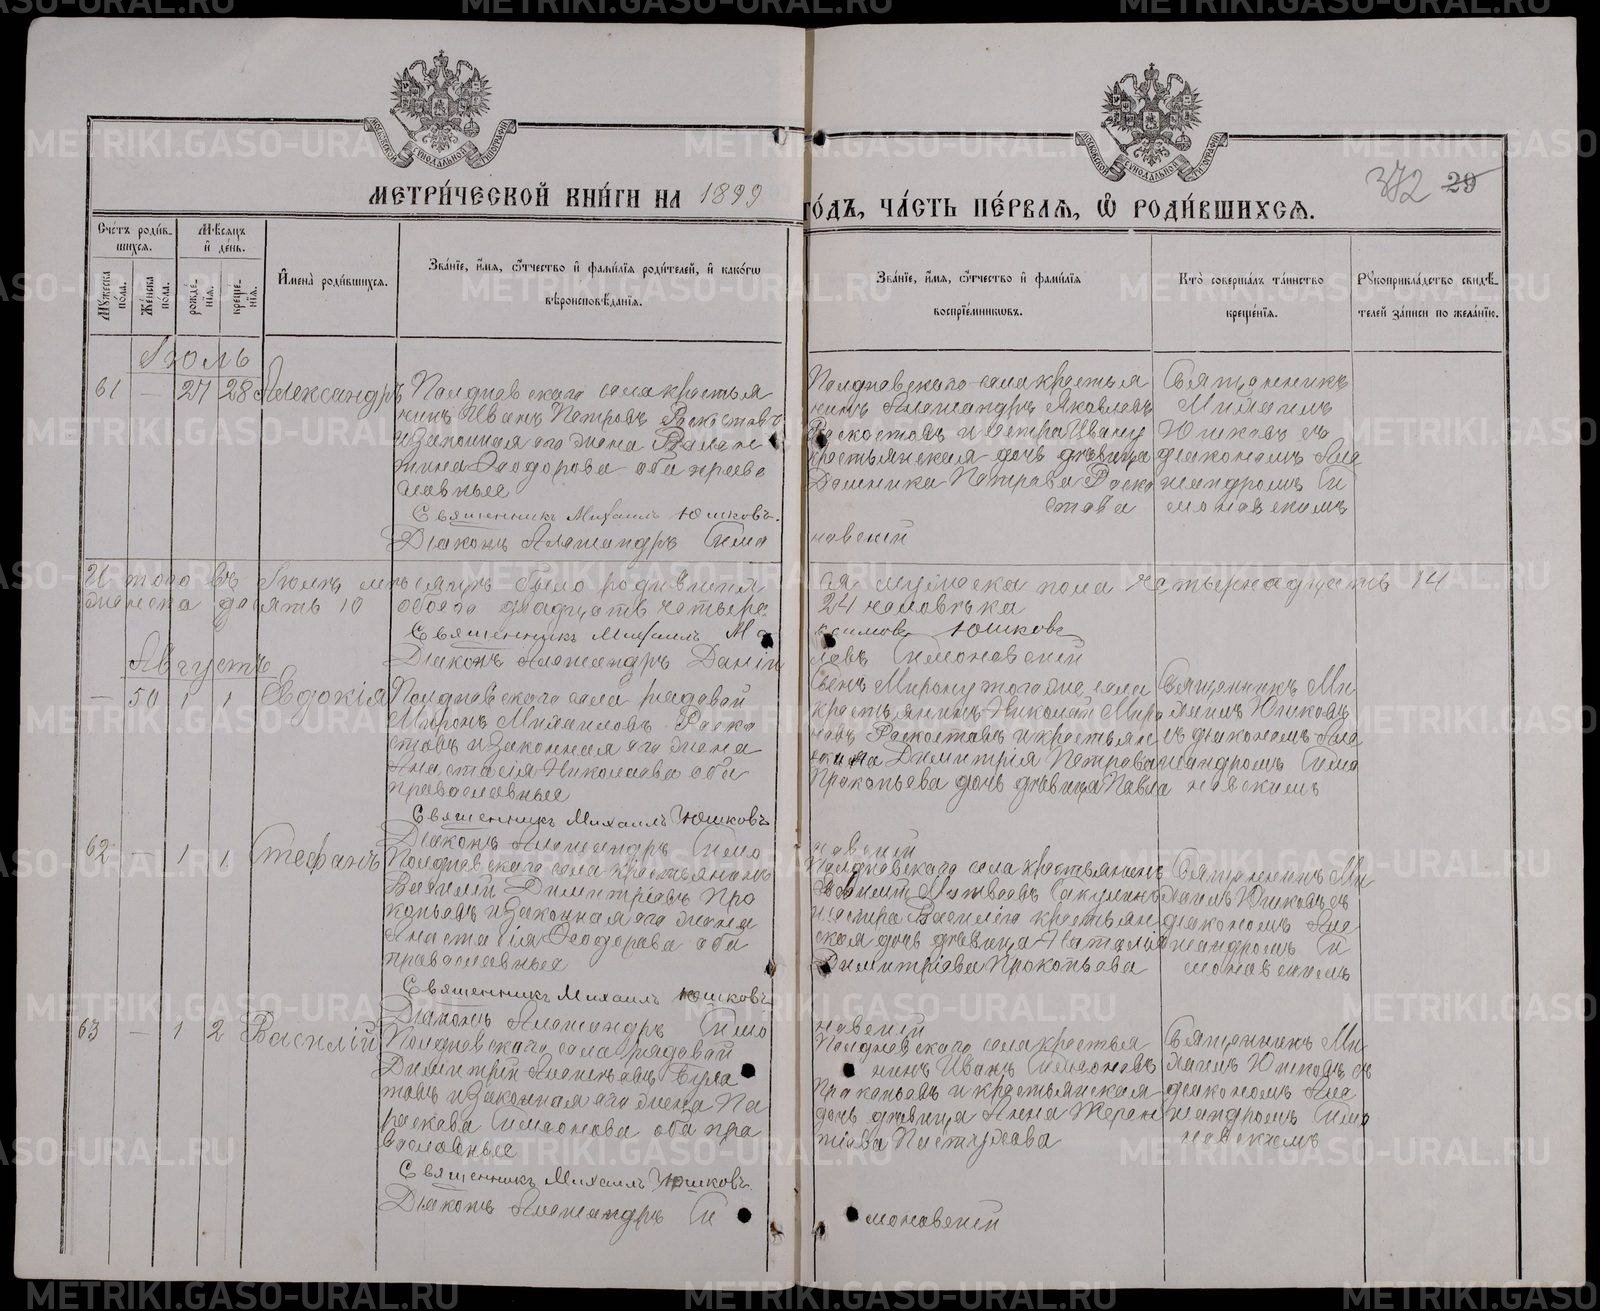 МЕТРИ́ЧЕСКОЙ КНИ́ГИ НА 1899
ГО́ДЪ, ЧА́СТЬ ПЕ́РВАЯ, Ѿ РОДИ́ВШИХСЯ.
372 29
Сче́тъ роди́вшихся.
Му́жеска по́ла.
Же́нска по́ла.
Мѣ́сяцъ и҆ де́нь.
рожде́нїѧ.
креще́нїѧ.
И҆мена̀ роди́вшихся.
Зва́нїе, и҆́мѧ, ѻ҆́тчество и҆ фами́лїѧ роди́телей, и҆ како́гѡ
вѣроисповѣ́данїѧ.
Зва́нїе, и҆́мѧ, ѻ҆́тчество и҆ фами́лїѧ
воспрїе́мникѡвъ.
Кто̀ соверша́лъ та́инство
креще́нїѧ.
Рꙋкоприкла́дство свидѣ́-
телей за́писи по жела́нїю.
Іюль
61 — 27 28 Александръ
Полдневскаго села крестья
нинъ Иванъ Петровъ Раскостовъ
и законная его жена
Ѳеодорова оба право
славные
Священникъ Михаилъ Юшковъ.
Діаконъ Александръ Симо
новскій
Полдневскаго села крестья
нинъ Александръ Яковлевъ
Раскостовъ и сестра Ивану
крестьянская дочь дѣвица
Домника Петрова Раско
стова
Священникъ
Михаилъ
Юшковъ съ
діакономъ Але
ксандромъ Си
моновскимъ
Итого въ Іюлѣ мѣсяцѣ было родившихся мужеска пола четырнадцать 14
женска десять 10 обоего двадцать четыре 24 человѣка
Священникъ Михаилъ Ма
ксимовъ Юшковъ
Діаконъ Александръ Даніи
ловъ Симоновскій
Августъ
— 50 1 1 Евдокія
Полдневскаго села рядовой
Миронъ Михаиловъ Раско
стовъ и законная его жена
Анастасія Николаева оба
православные
Священникъ Михаилъ Юшковъ
Діаконъ Александръ Симо
новскій
Мирону того же села
крестьянинъ Николай Миро
новъ Раскостовъ и крестьян
Димитрія Петрова
Прокопьева дочь дѣвица Павла
Священникъ Ми
хаилъ Юшковъ
съ діакономъ Але
ксандромъ Симо
новскимъ
62 — 1 1 Стефанъ
Полдневскаго села крестьянинъ
Василій Димитріевъ Про
копьевъ и законная его жена
Анастасія Ѳеодорова оба
православные
Священникъ Михаилъ Юшковъ
Діаконъ Александръ Симо
новскій
Полдневскаго села крестьянинъ
Матвѣевъ
и сестра Василія крестьян
ская дочь дѣвица Наталія
Димитріева Прокопьева
Священникъ Ми
хаилъ Юшковъ съ
діакономъ Але
ксандромъ Си
моновскимъ
63 — 1 2 Василій
Полдневскаго села рядовой
Димитрій Алексѣевъ Була
товъ и законная его жена Па
раскева Симеонова оба пра
вославные
Священникъ Михаилъ Юшковъ.
Діаконъ Александръ Си
моновскій
Полдневскаго села крестья
нинъ Иванъ Симеоновъ
Прокопьевъ и крестьянская
дочь дѣвица Анна Терен
тіева Пастухова
Священникъ Ми
хаилъ Юшковъ съ
діакономъ Але
ксандромъ Симо
новскимъ
METRIKI.GASO-URAL.RU